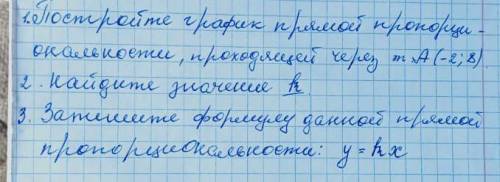 1. Постройте график прямой пропорци-
ональности, проходящей через т. А (-2; 8).
2. Найдите значение k.
3. Запишите формулу данной прямой
пропорциональности: y = kx